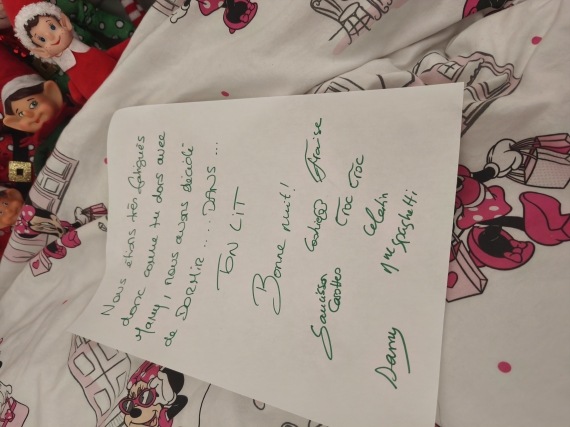 Nous étions très fatigués
donc comme tu dors avec
Mamy, nous avons décidé
de DORMIR .... DANS ...
TON LIT
Bonne nuit!
Saucisson Cachou Fraise
Carottes Croc Croc
Célestin
Mme Spaghetti
Samy